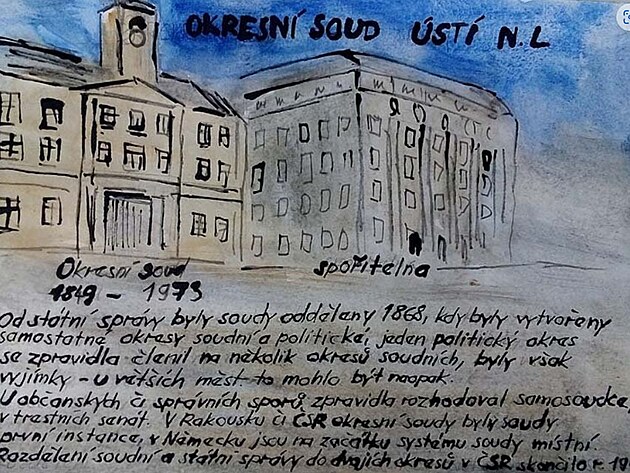 OKRESNÍ SOUD ÚSTÍ N.L
Okresní soud
1849 - 1973
spořitelna
Od státní správy byly soudy odděleny 1868, kdy byly vytvořeny
samostatné okresy soudní a politické, jeden politický okres
se zpravidla členil na několik okresů soudních, byly však
vyjímky - u větších měst to mohlo být naopak.
U občanských či správních sporů zpravidla rozhodoval samosoudce,
v trestních senát. V Rakousku či ČSR okresní soudy byly soudy
první instance, v Německu jsou na začátku systému soudy místní
Rozdělení soudní a státní správy do dvojích okresů v ČSR skončilo r. 19